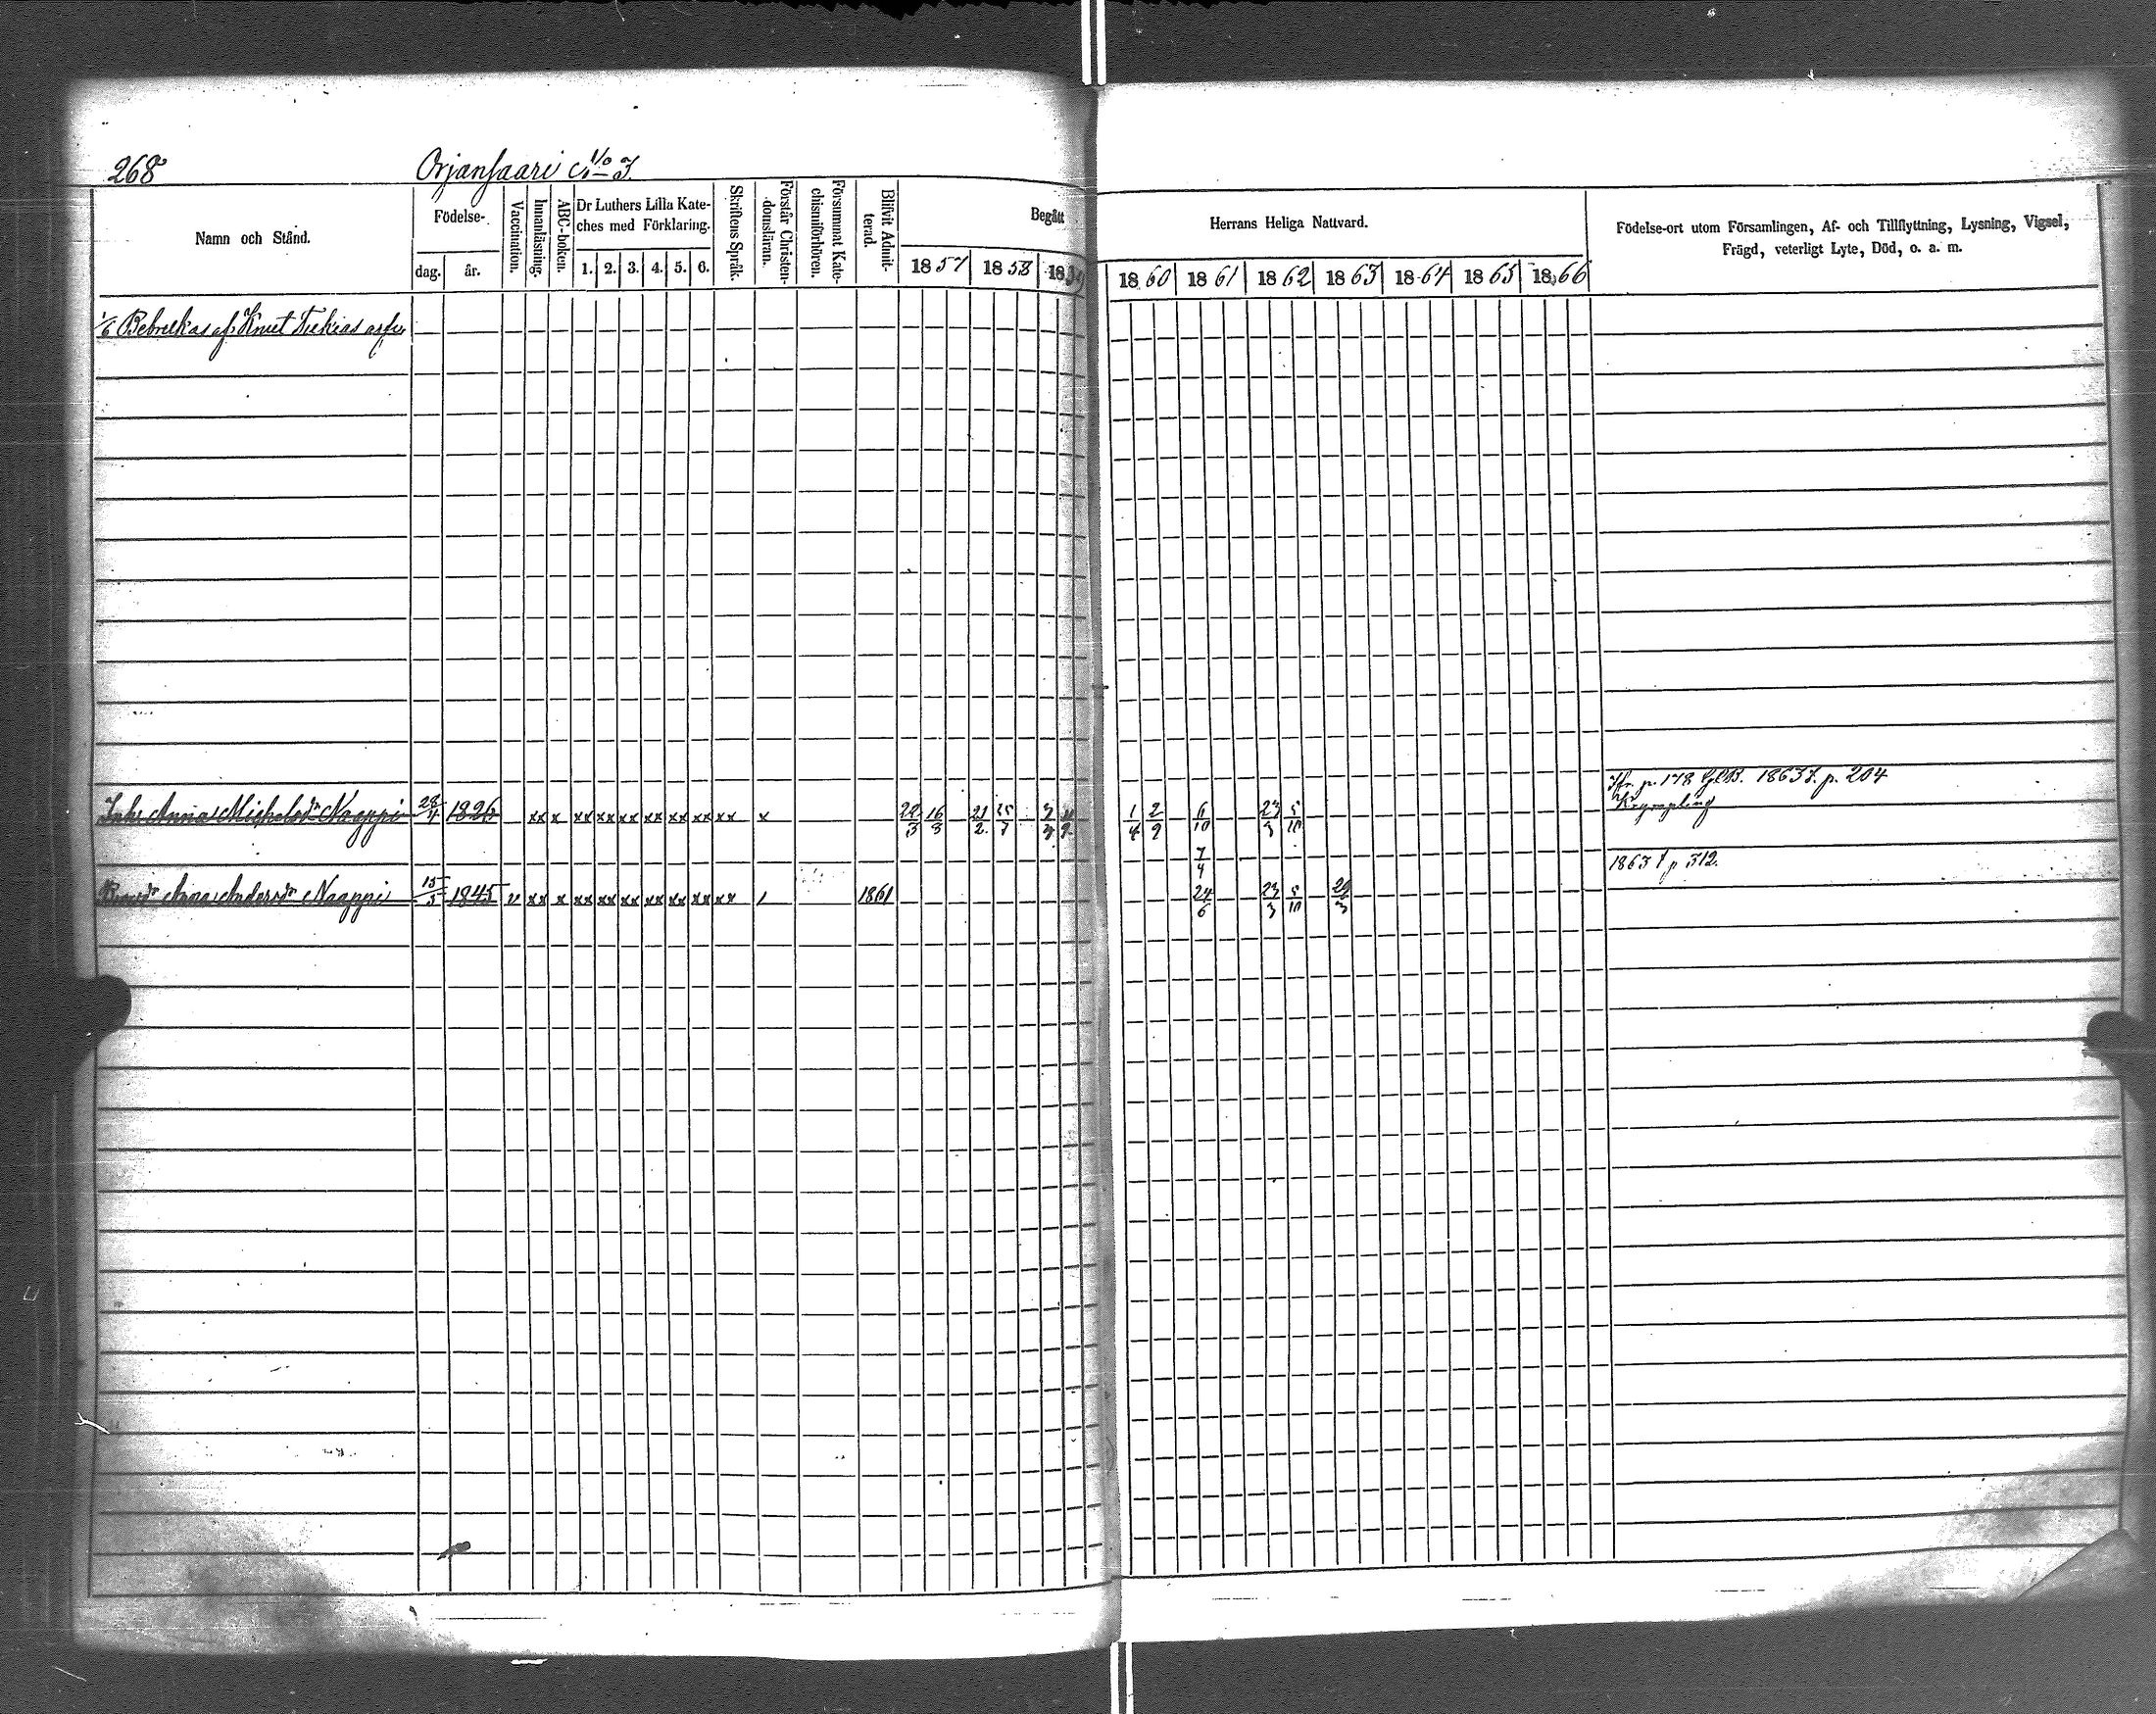 268 Orjansaari No 3.
Namn och Stånd.
Födelse-
dag. år.
Vaccination.
Innanläsning.
ABC-boken.
Dr Luthers Lilla Kate-
ches med Förklaring.
1. 2. 3. 4. 5. 6.
Skriftens Språk.
Förstår Christen-
domsläran.
Försummat Kate-
chismiförhören.
Blifvit Admit-
terad.
Begått Herrans Heliga Nattvard.
1857 1858 1859 1860 1861 1862 1863 1864 1865 1866
Födelse-ort utom Församlingen, Af- och Tillflyttning, Lysning, Vigsel,
Frägd, veterligt Lyte, Död, o. a. m.
1/6 af Knut
Jfr. p. 178 1863 f. p. 204
Inh. Anna Michelsdr Naappi 28/4 1826 xx x xx xx xx xx xx xx xx x 22/3 16/8 21/2 25/7 1/4 2/9 6/10 23/3 5/10
7/4 1863 f p 312.
Anna Andersdr Naappi 15/5 1845 v xx x xx xx xx xx xx xx xx / 1861 24/6 23/3 5/10 29/3